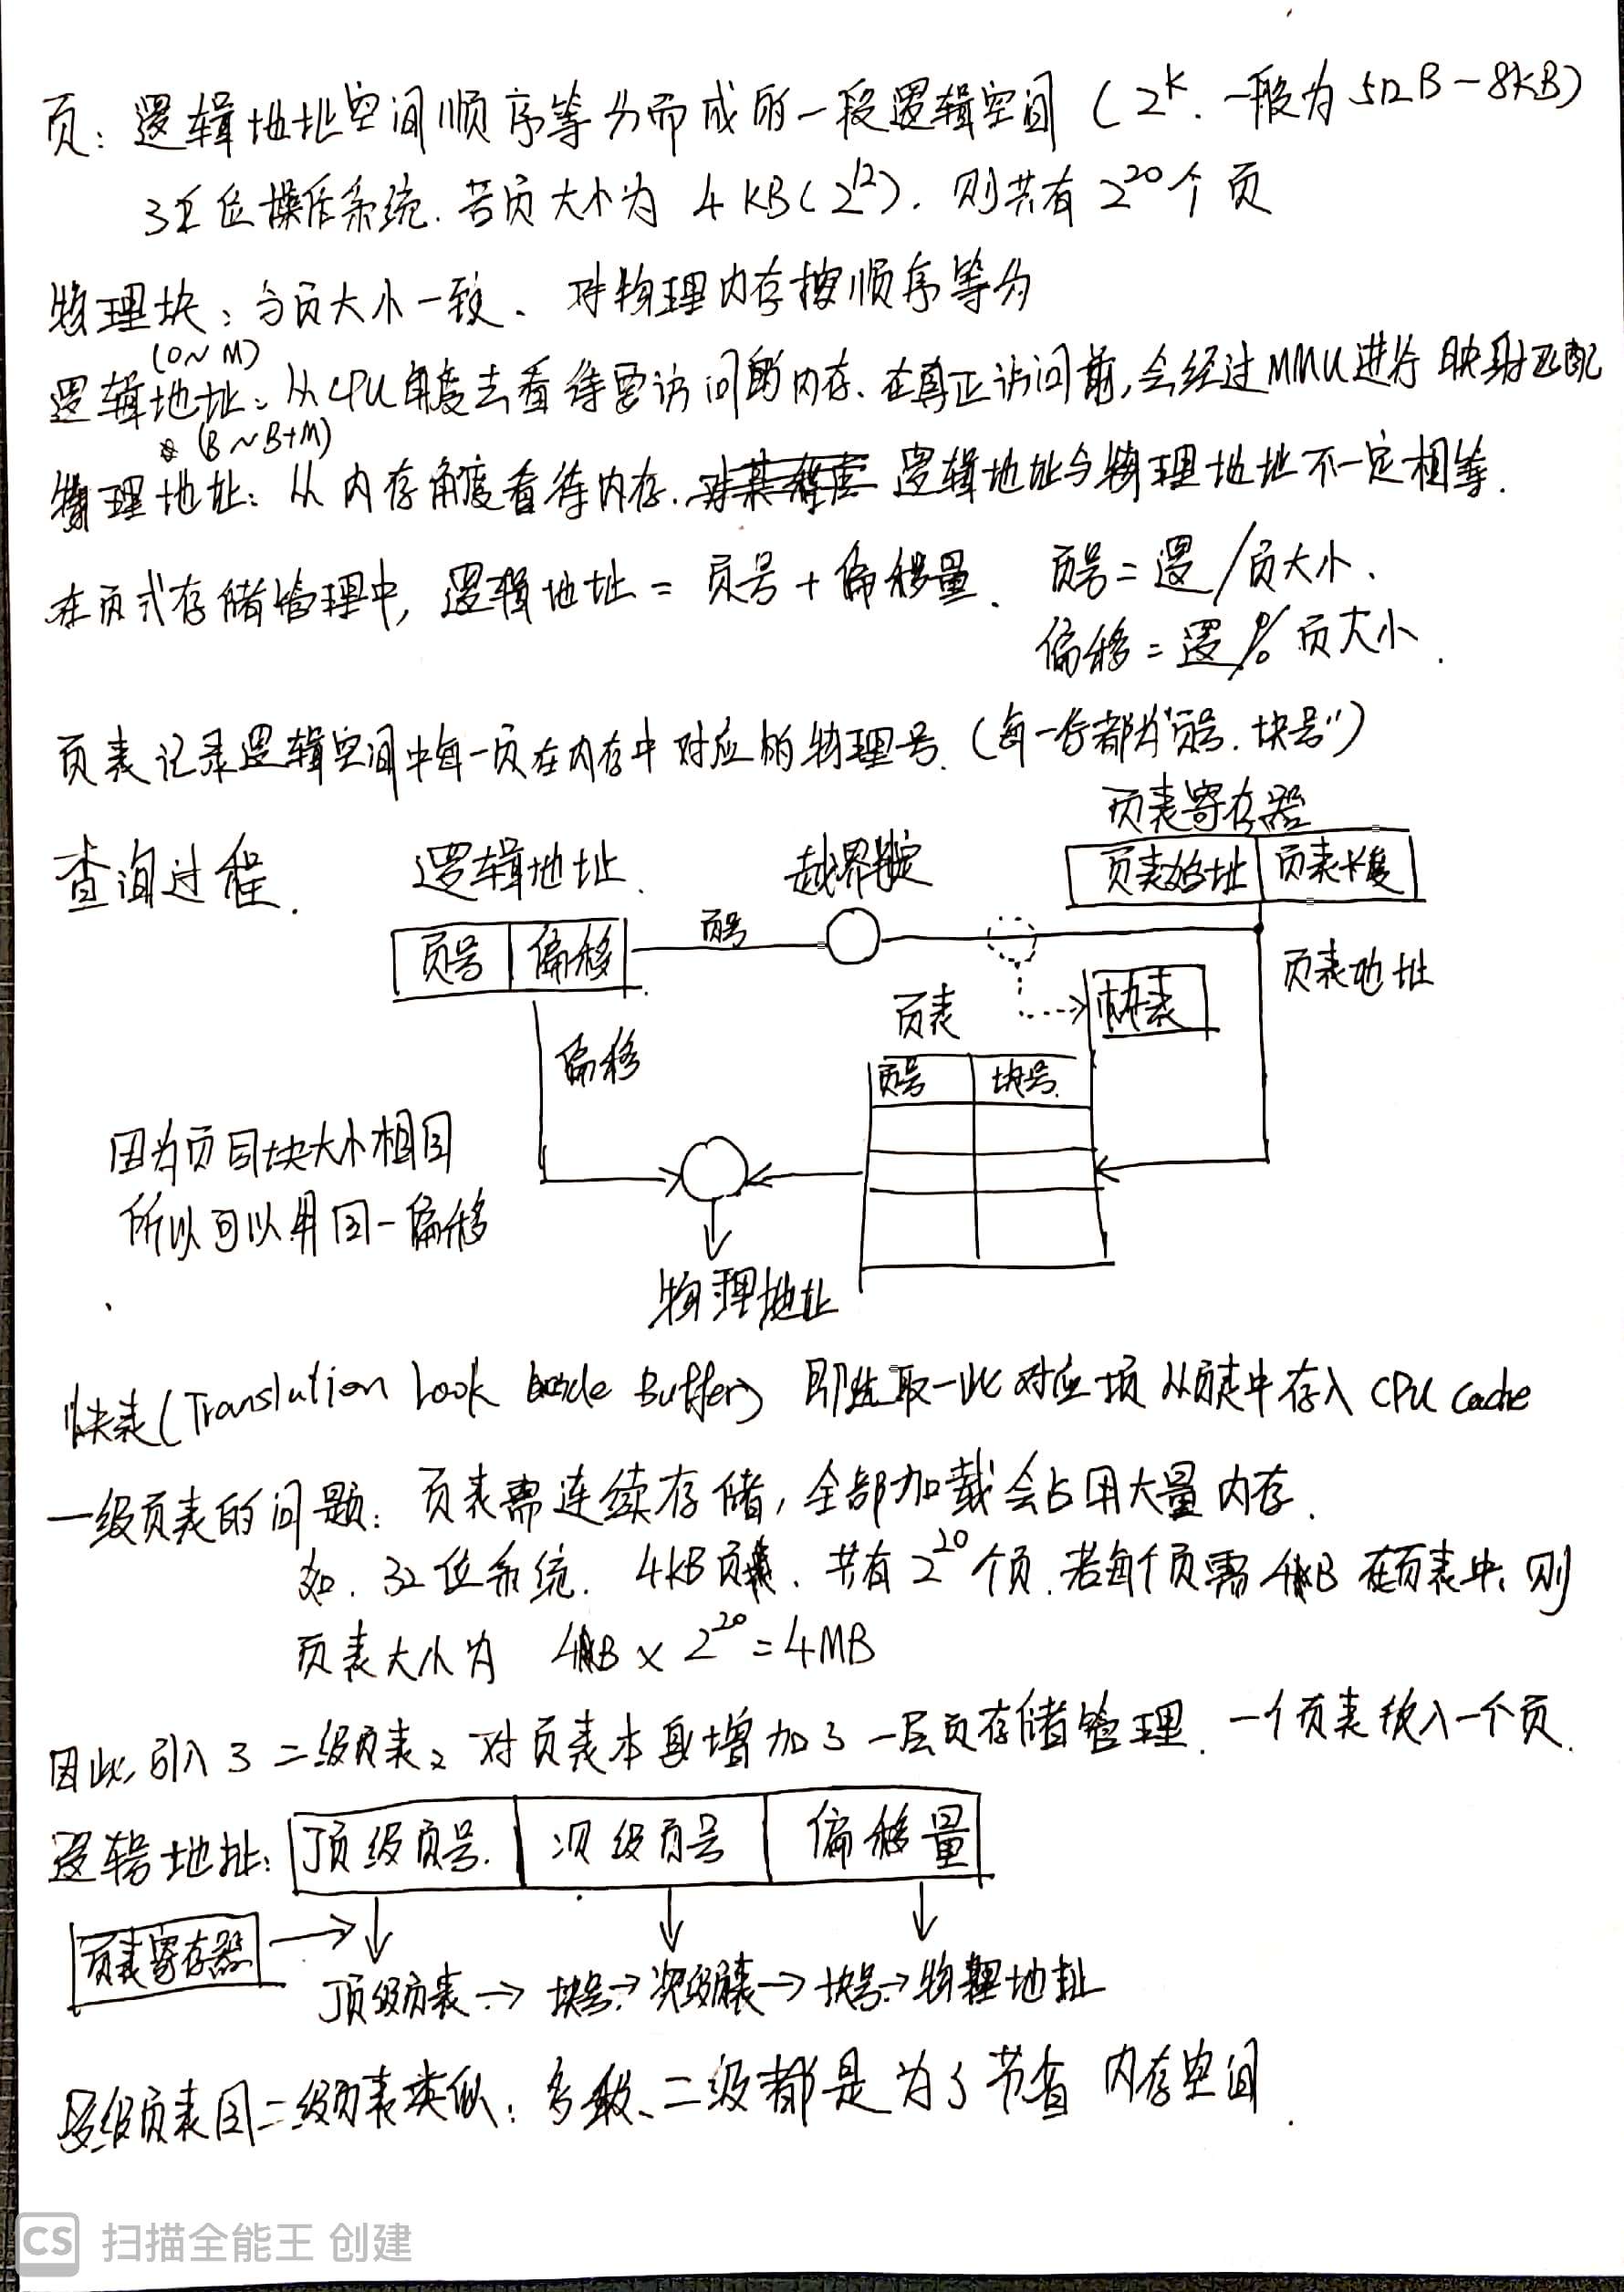 页：逻辑地址空间顺序等分而成的一段逻辑空间（2^k. 一般为512B-8KB）
32位操作系统. 若页大小为 4KB(2^12). 则共有 2^20 个页
物理块：与页大小一致、对物理内存按顺序等分
(0~M)
逻辑地址：从CPU角度去看待要访问的内存. 在真正访问前,会经过MMU进行 映射匹配
(B~B+M)
物理地址：从内存角度看待内存. 逻辑地址与物理地址不一定相等.
在页式存储管理中, 逻辑地址 = 页号 + 偏移量. 页号 = 逻 / 页大小.
偏移 = 逻 % 页大小.
页表记录逻辑空间中每一页在内存中对应的物理号.（每一行都为"页号. 块号"）
页表寄存器
查询过程. 逻辑地址. 越界判定 页表始址 页表长度
页号 偏移 页号 页表地址
页表 快表
偏移 页号 块号.
因为页同块大小相同
所以可以用同一偏移
物理地址
快表(Translation Look Buffer) 即选取一些对应项从页表中存入CPU Cache
一级页表的问题：页表需连续存储, 全部加载会占用大量内存.
如. 32位系统. 4KB页. 共有 2^20 个页. 若每个页需 4B 在页表中, 则
页表大小为 4B × 2^20 = 4MB
因此, 引入了二级页表, 对页表本身增加了一层页存储管理. 一个页表放入一个页.
逻辑地址: 顶级页号. 次级页号 偏移量
页表寄存器
顶级页表 → 块号 → 次级页表 → 块号 → 物理地址
多级页表同二级页表类似：多级、二级都是为了节省 内存空间.
CS 扫描全能王 创建